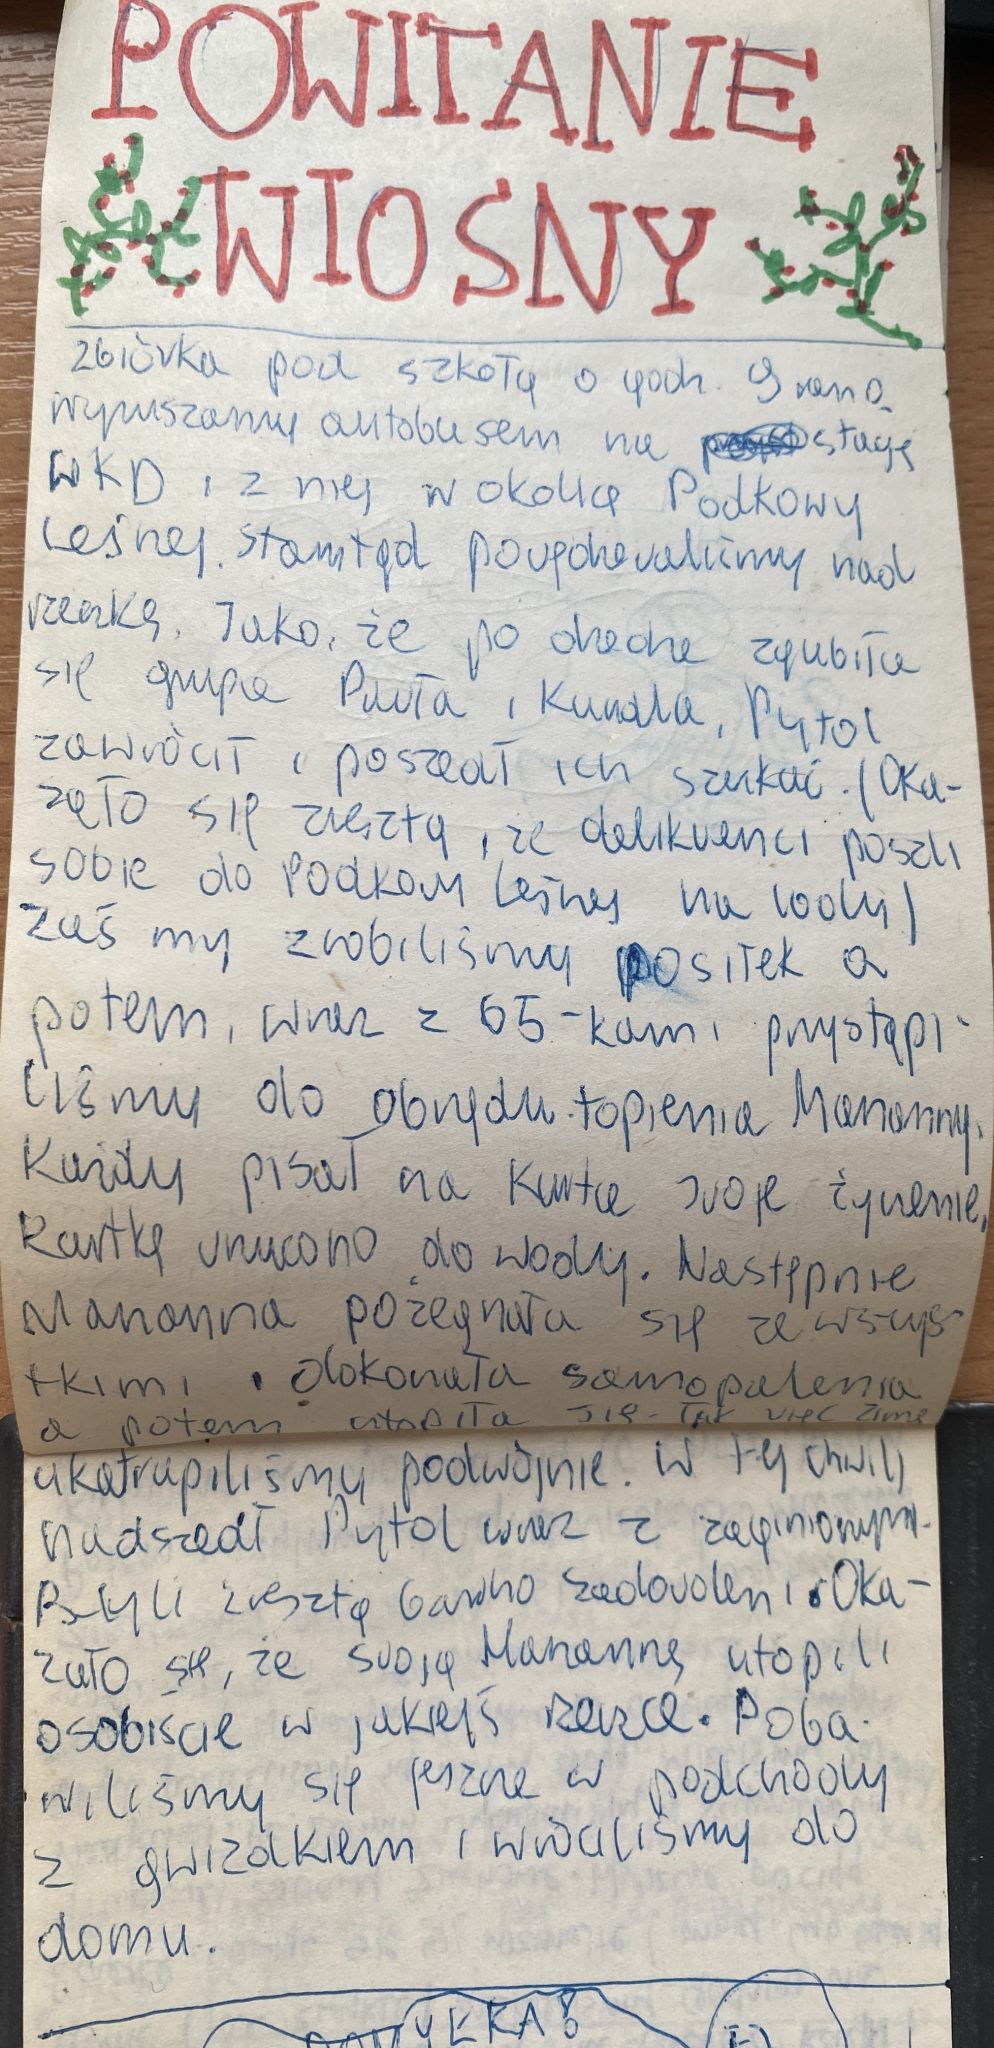 POWITANIE
WIOSNY
Zbiórka pod szkołą o godz. 9 rano.
wyruszamy autobusem na stację
WKD i z niej w okolicę Podkowy
Leśnej. Stamtąd powędrowaliśmy nad
rzeczkę. Jako, że po drodze zgubiła
się grupa Pawła i Karola, Pytol
zawrócił i poszedł ich szukać. (Oka-
zało się zresztą, że delikwenci poszli
sobie do Podkowy Leśnej na lody)
Zaś my zrobiliśmy posiłek a
potem, wraz z 65-kami przystąpi-
liśmy do obrzędu topienia Marzanny.
Każdy pisał na kartce swoje życzenie,
Kartkę wrzucono do wody. Następnie
Marzanna pożegnała się ze wszys-
tkimi, dokonała samopalenia
a potem utopiła się. Tak więc zimę
ukatrupiliśmy podwójnie. W tej chwili
nadszedł Pytol wraz z zaginionymi.
Byli zresztą bardzo zadowoleni. Oka-
zało się, że swoją Marzannę utopili
osobiście w jakiejś rzeczce. Poba-
wiliśmy się jeszcze w podchody
z gwizdkiem i wróciliśmy do
domu.